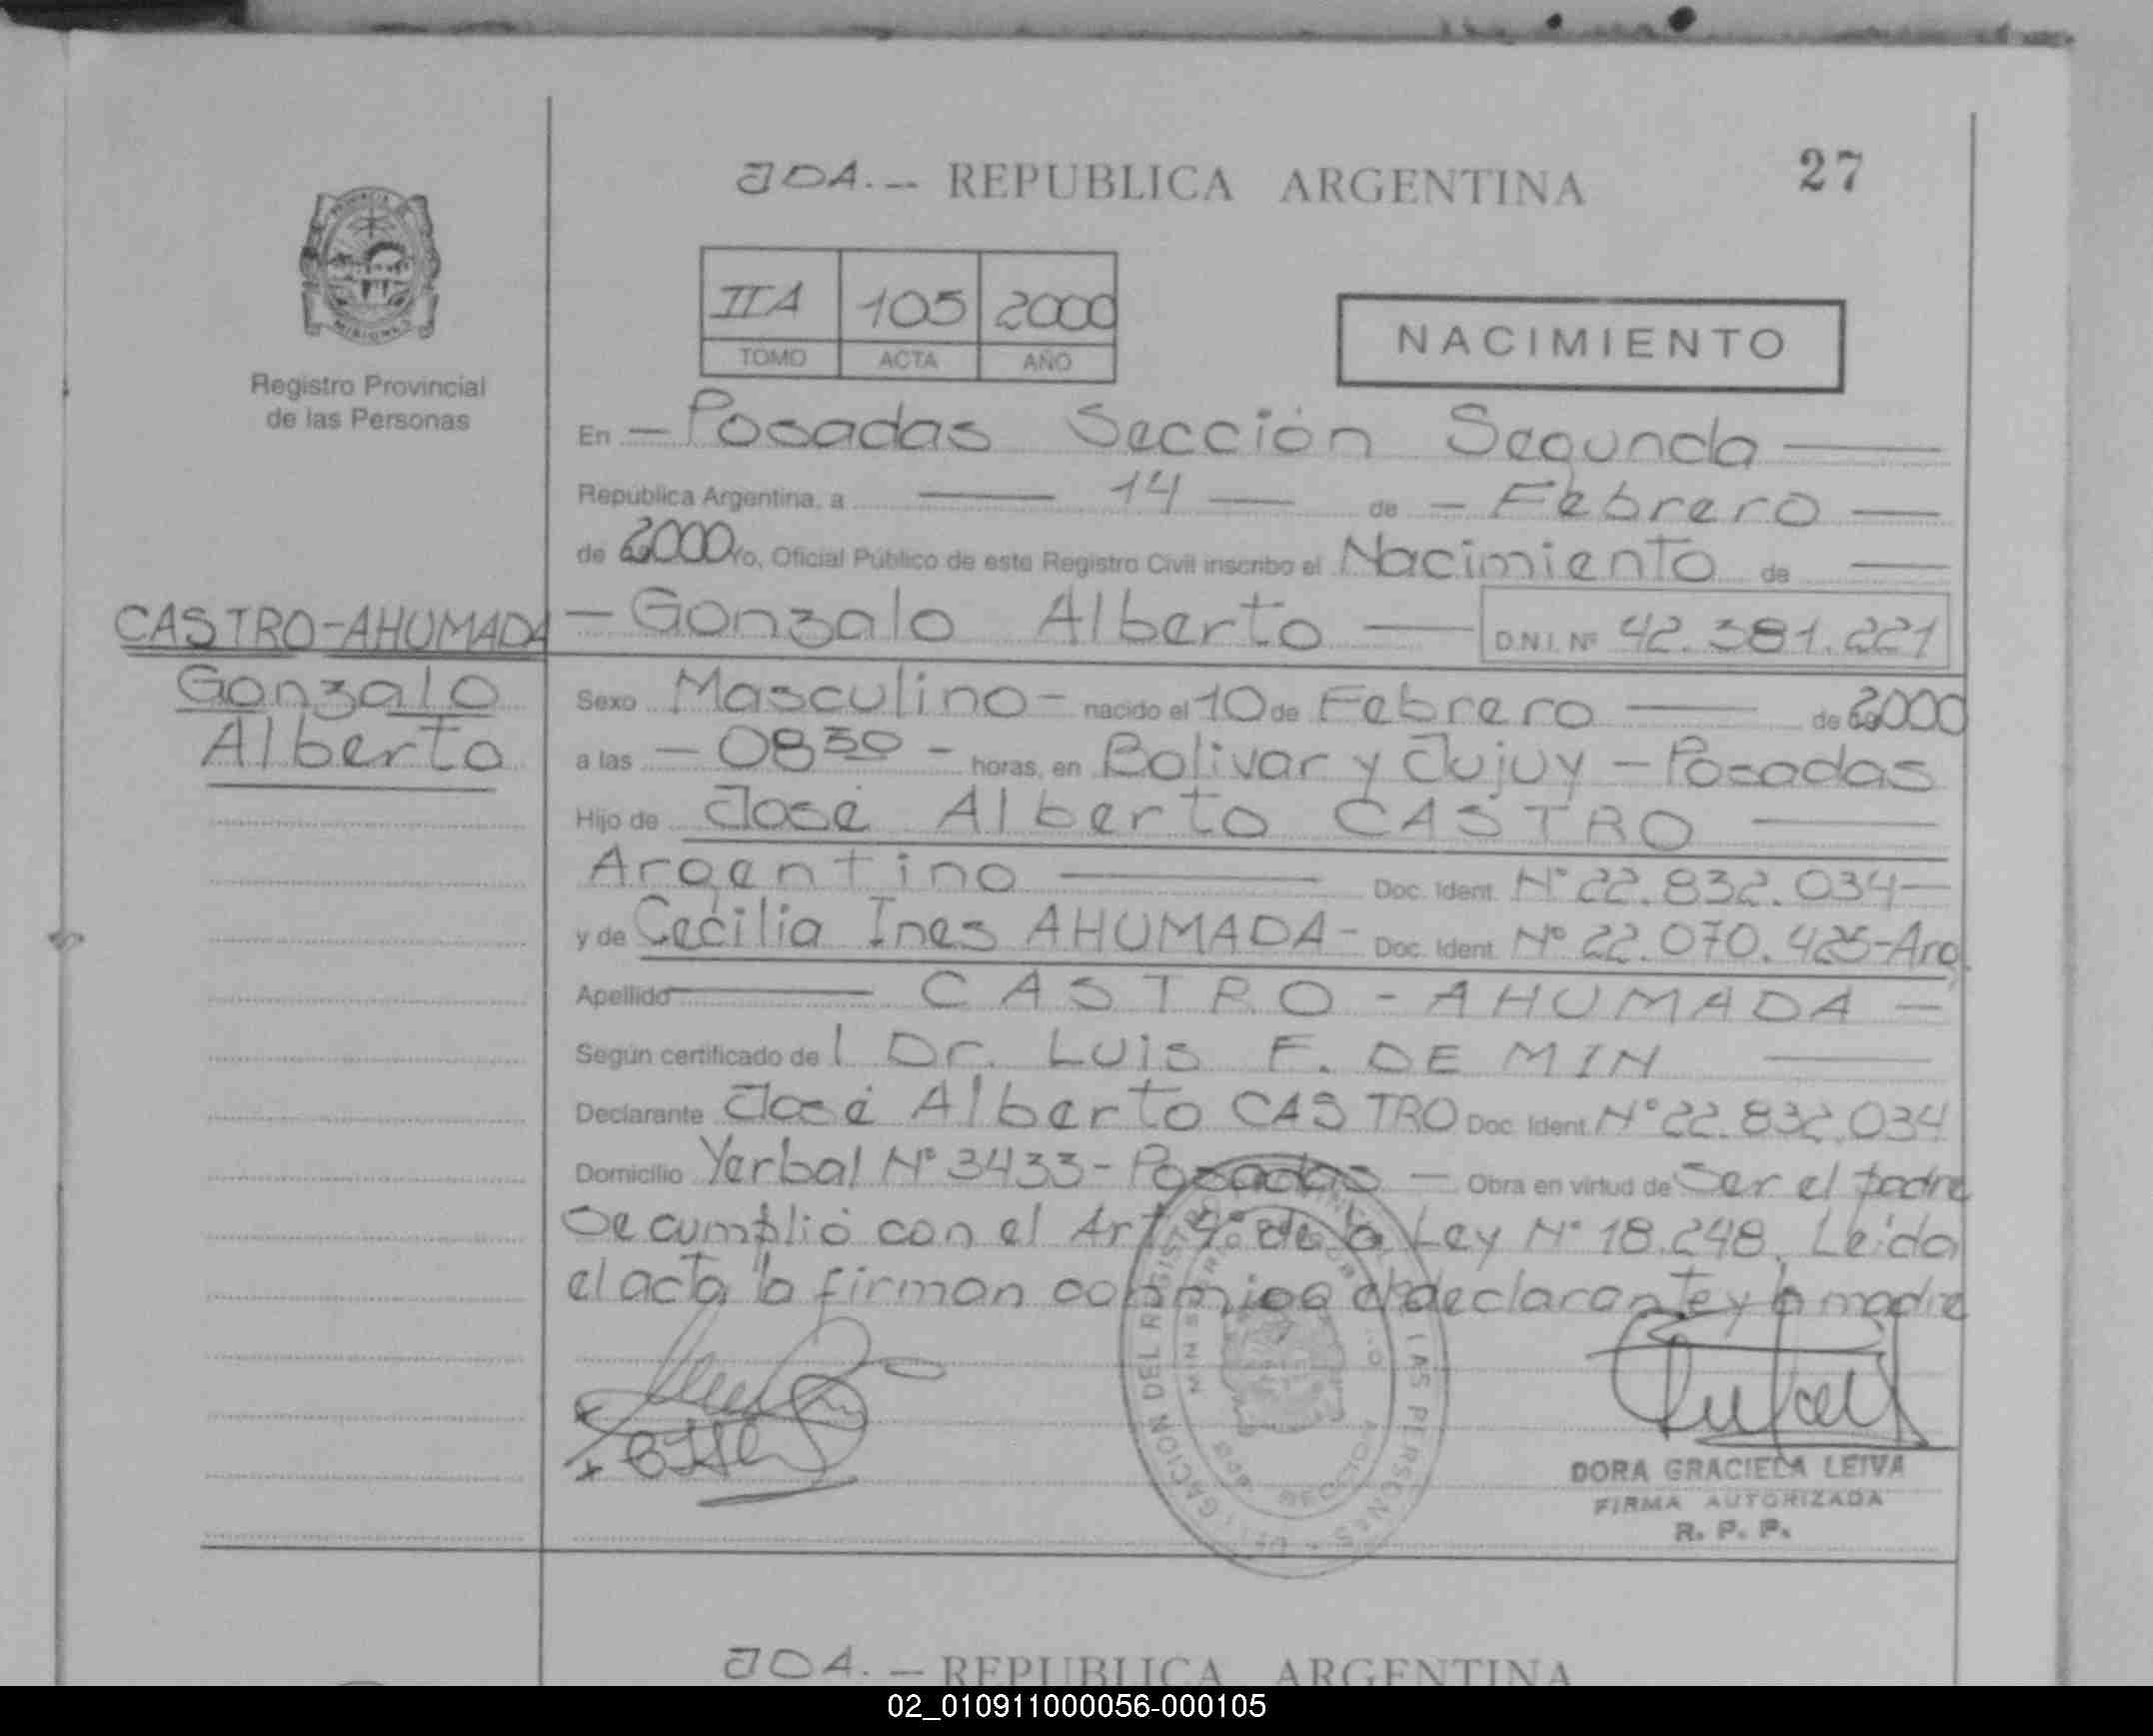 JDA.- REPUBLICA ARGENTINA 27
IIA 105 2000
TOMO ACTA AÑO
NACIMIENTO
Registro Provincial
de las Personas
En - Posadas Sección Segunda
República Argentina, a 14 de - Febrero
de 2000 Yo, Oficial Público de este Registro Civil inscribo el Nacimiento de
CASTRO-AHUMADA
Gonzalo
Alberto
- Gonzalo Alberto D.N.I. Nº 42.381.221
Sexo Masculino - nacido el 10 de Febrero de 2000
a las - 08 30 - horas, en Bolivar y Jujuy - Posadas
Hijo de José Alberto CASTRO
Argentino Doc. Ident. Nº 22.832.034
y de Cecilia Ines AHUMADA - Doc. Ident. Nº 22.070.425-Arg.
Apellido CASTRO - AHUMADA
Según certificado del Dr. LUIS F. DE MIN
Declarante José Alberto CASTRO Doc. Ident. Nº 22.832.034
Domicilio Yerbal Nº 3433 - Posadas - Obra en virtud de Ser el padre
Se cumplió con el Art. 4º de la Ley Nº 18.248. Leída
el acta la firman conmigo el declarante y la madre
DELEGACION DEL REGISTRO LAS PERSONAS
DORA GRACIELA LEIVA
FIRMA AUTORIZADA
R. P. P.
JDA.- REPUBLICA ARGENTINA
02_010911000056-000105